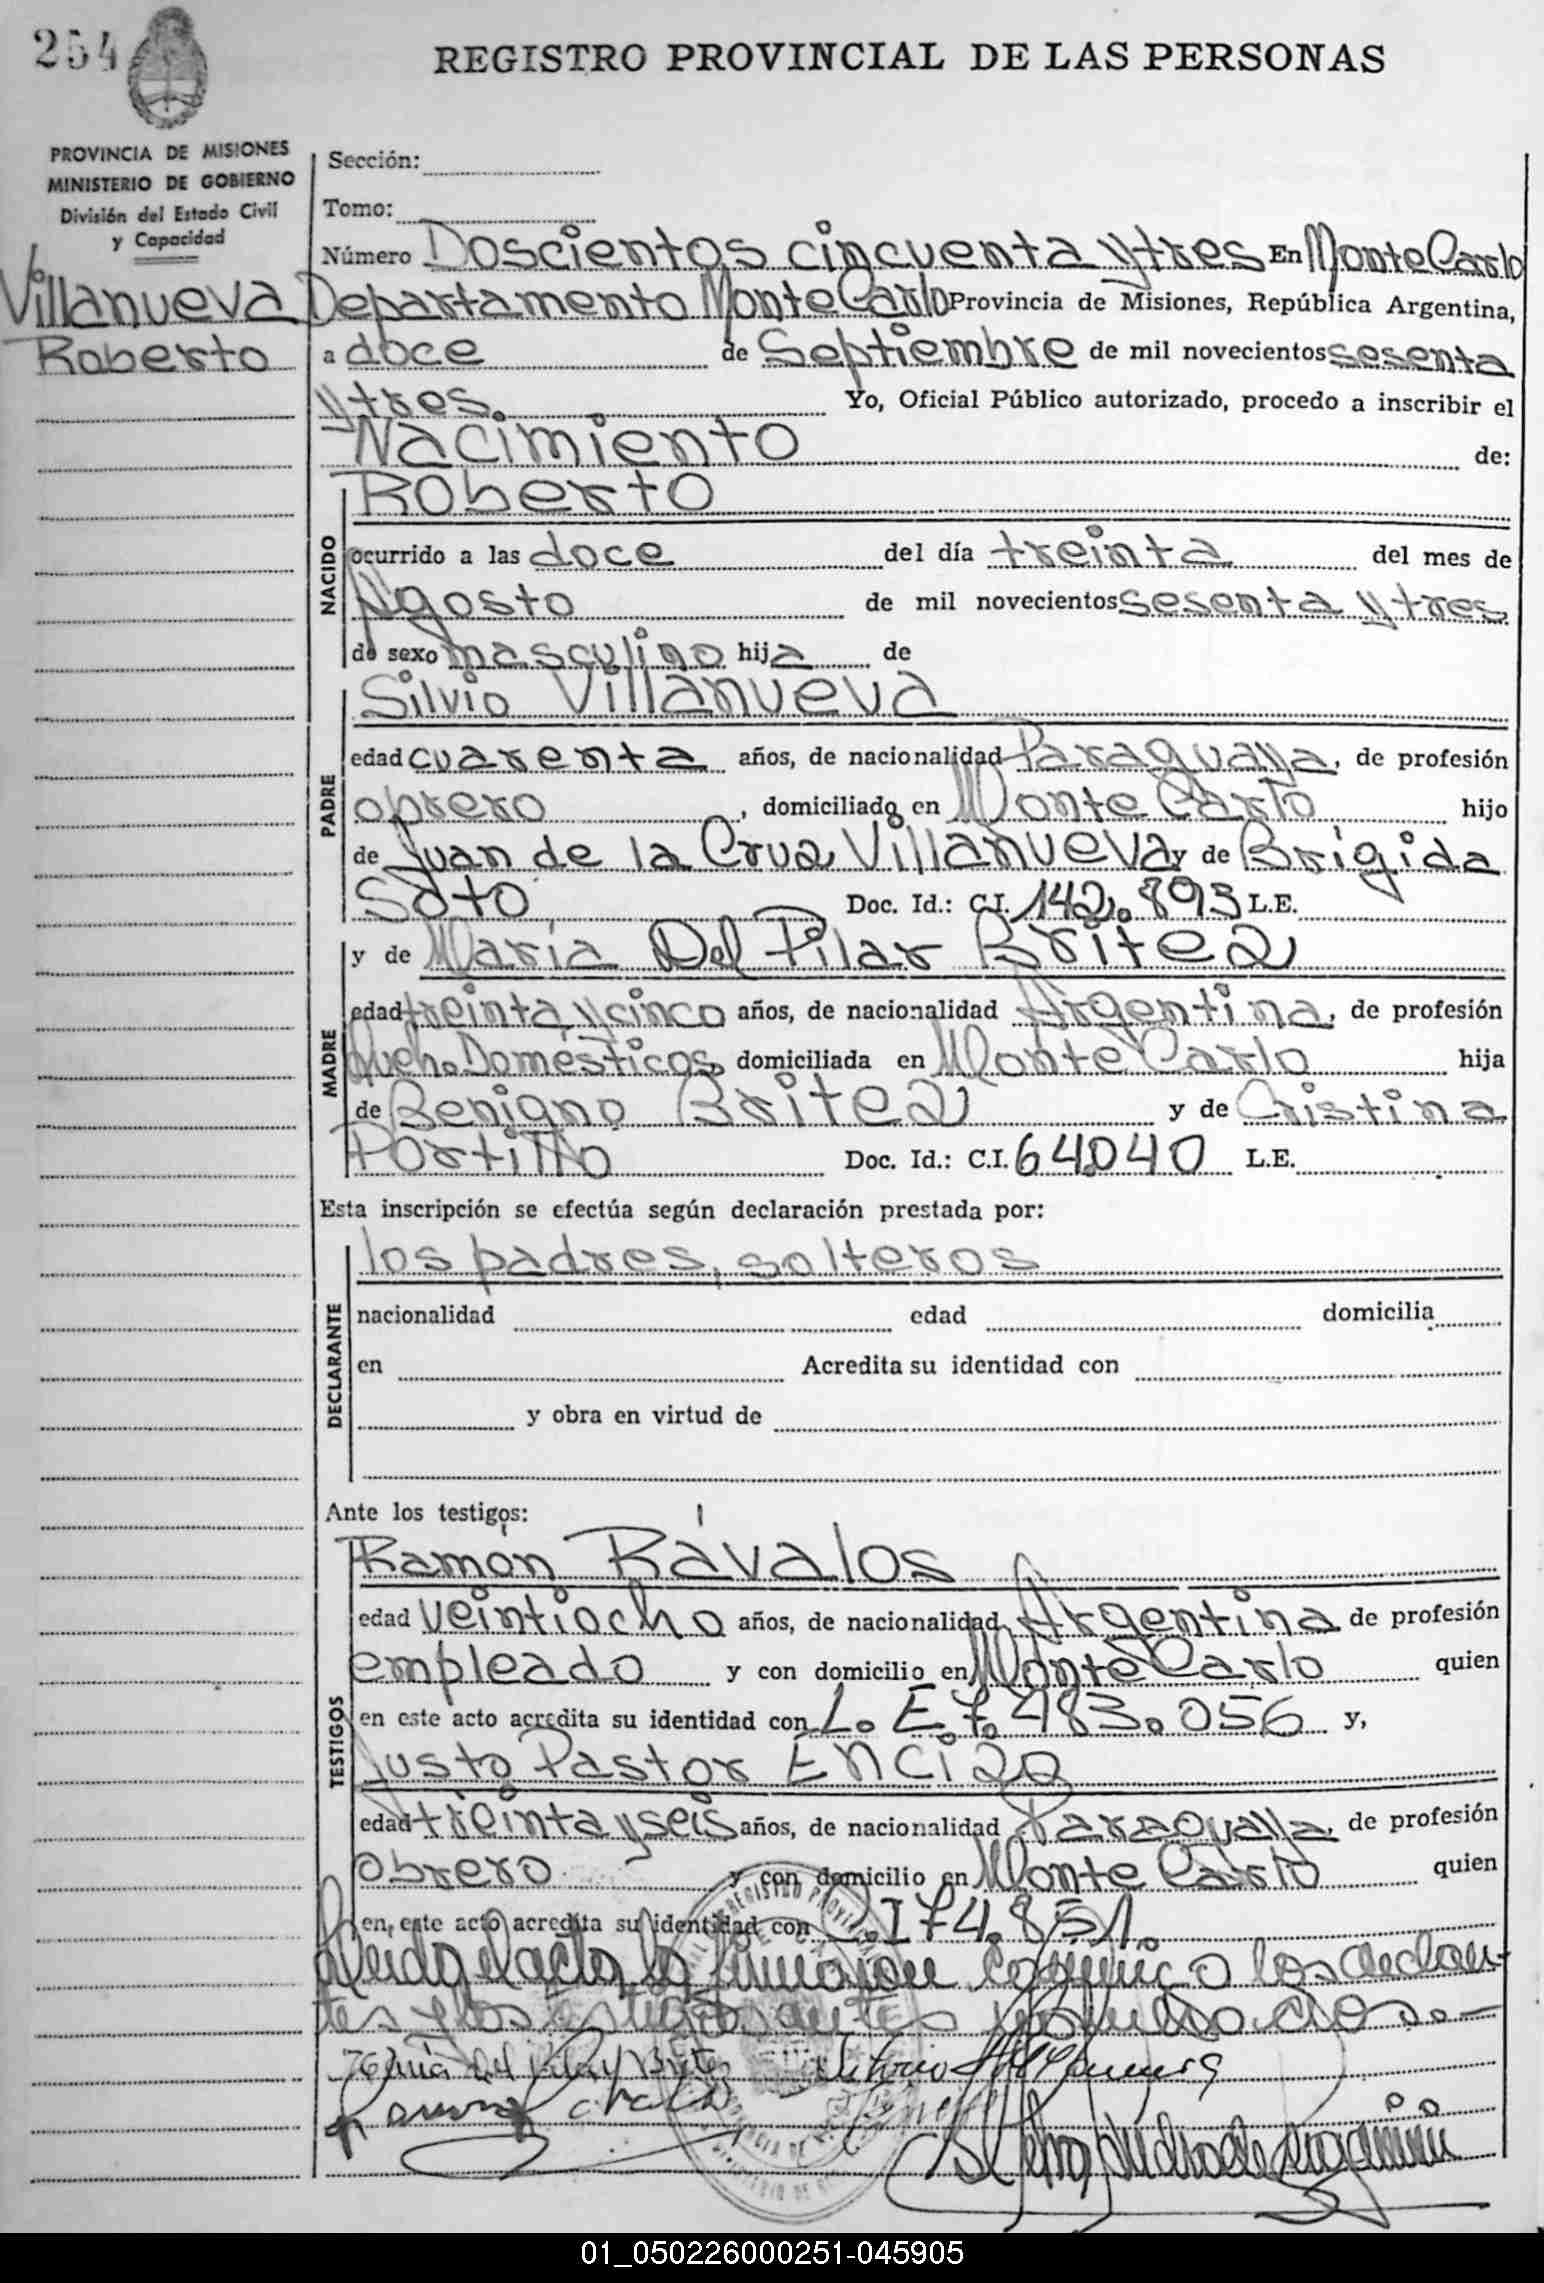 254
REGISTRO PROVINCIAL DE LAS PERSONAS
PROVINCIA DE MISIONES
MINISTERIO DE GOBIERNO
División del Estado Civil
y Capacidad
Villanueva
Roberto
Sección:
Tomo:
Número Doscientos cincuenta y tres En Monte Carlo
Departamento Monte Carlo Provincia de Misiones, República Argentina,
a doce de Septiembre de mil novecientos sesenta
y tres. Yo, Oficial Público autorizado, procedo a inscribir el
Nacimiento de:
NACIDO
Roberto
ocurrido a las doce del día treinta del mes de
Agosto de mil novecientos sesenta y tres
de sexo masculino hija de
PADRE
Silvio Villanueva
edad cuarenta años, de nacionalidad Paraguaya, de profesión
obrero, domiciliado en Monte Carlo hijo
de Juan de la Cruz Villanueva y de Brígida
Soto Doc. Id.: C.I. 142.893 L.E.
MADRE
y de María Del Pilar Britez
edad treinta y cinco años, de nacionalidad Argentina, de profesión
Domésticos, domiciliada en Monte Carlo hija
de Benigno Britez y de Cristina
Portillo Doc. Id.: C.I. 64.040 L.E.
Esta inscripción se efectúa según declaración prestada por:
DECLARANTE
los padres, solteros
nacionalidad edad domicilia
en Acredita su identidad con
y obra en virtud de
Ante los testigos:
TESTIGOS
Ramón Rávalos
edad veintiocho años, de nacionalidad Argentina de profesión
empleado y con domicilio en Monte Carlo quien
en este acto acredita su identidad con L. E. 7.483.056 y,
Justo Pastor Encizo
edad treinta y seis años, de nacionalidad Paraguaya, de profesión
obrero y con domicilio en Monte Carlo quien
en este acto acredita su identidad con C.I 74.851.
Leida el acta la firmaron conmigo los declaran-
tes y los testigos antes
María del Pilar Britez
01_050226000251-045905